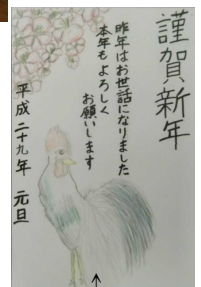 謹賀新年
昨年はお世話になりました
本年もよろしく
お願いします
平成二十九年 元旦